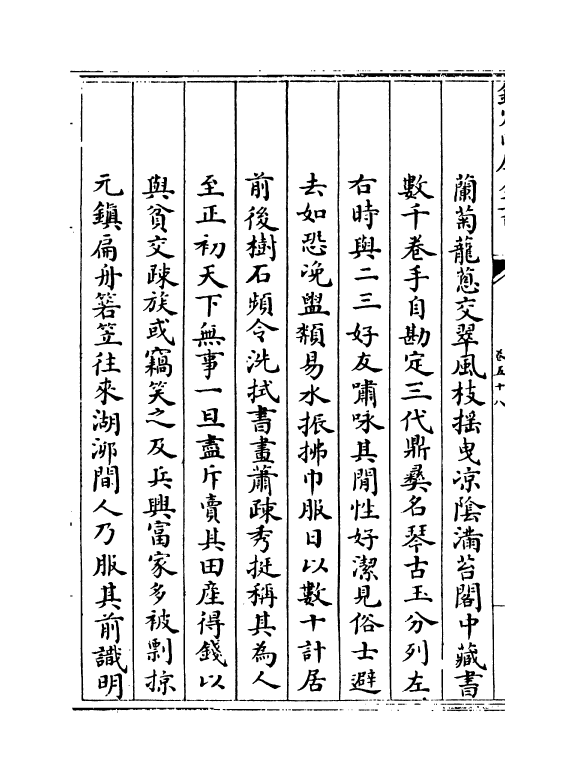 蘭菊蘢蔥交翠風枝揺曳凉隂滿苔閣中藏書
數千卷手自勘定三代鼎彝名琴古玉分列左
右時與二三好友嘯咏其間性好潔見俗士避
去如恐浼盥頮易水振拂巾服日以數十計居
前後樹石頻令洗拭書畫蕭疎秀挺稱其為人
至正初天下無事一旦盡斥賣其田産得錢以
與貧交疎族或竊笑之及兵興富家多被剽掠
元鎮扁舟箬笠往來湖泖間人乃服其前識明
卷五十八